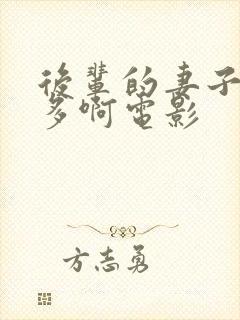 後輩的妻子
多啊電影
方志勇